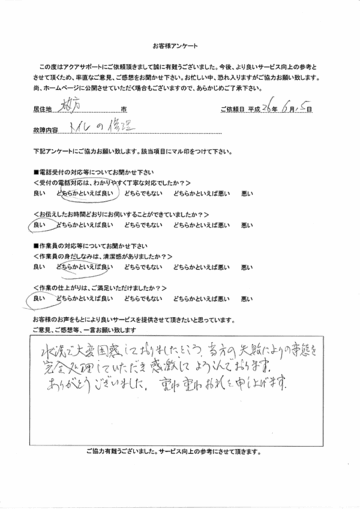 お客様アンケート
この度はアクアサポートにご依頼頂きまして誠に有難うございました。今後、より良いサービス向上の参考と
させて頂くため、率直なご意見、ご感想をお聞かせ下さい。お忙しい中、恐れ入りますがご協力お願い致します。
尚、ホームページに公開させていただく場合もございますので、あらかじめご了承下さい。
居住地 枚方 市 ご依頼日 平成 26年 6月 15日
故障内容 トイレの修理
下記アンケートにご協力お願い致します。該当項目にマル印をつけて下さい。
■電話受付の対応等についてお聞かせ下さい
<受付の電話対応は、わかりやすく丁寧な対応でしたか?>
良い どちらかといえば良い どちらでもない どちらかといえば悪い 悪い
<お伝えしたお時間どおりにお伺いすることができていましたか?>
良い どちらかといえば良い どちらでもない どちらかといえば悪い 悪い
■作業員の対応等についてお聞かせ下さい
<作業員の身だしなみは、清潔感がありましたか?>
良い どちらかといえば良い どちらでもない どちらかといえば悪い 悪い
<作業の仕上がりは、ご満足いただけましたか?>
良い どちらかといえば良い どちらでもない どちらかといえば悪い 悪い
お客様のお声をもとにより良いサービスを提供させて頂きたいと思っています。
ご意見、ご感想等、一言お願い致します
水洗で大変困惑しておりましたところ、当方の失敗によりの事態を
完全処理していただき感激して よろこんでおります。
ありがとうございました。 重ね重ねお礼を申し上げます。
ご協力有難うございました。サービス向上の参考にさせて頂きます。